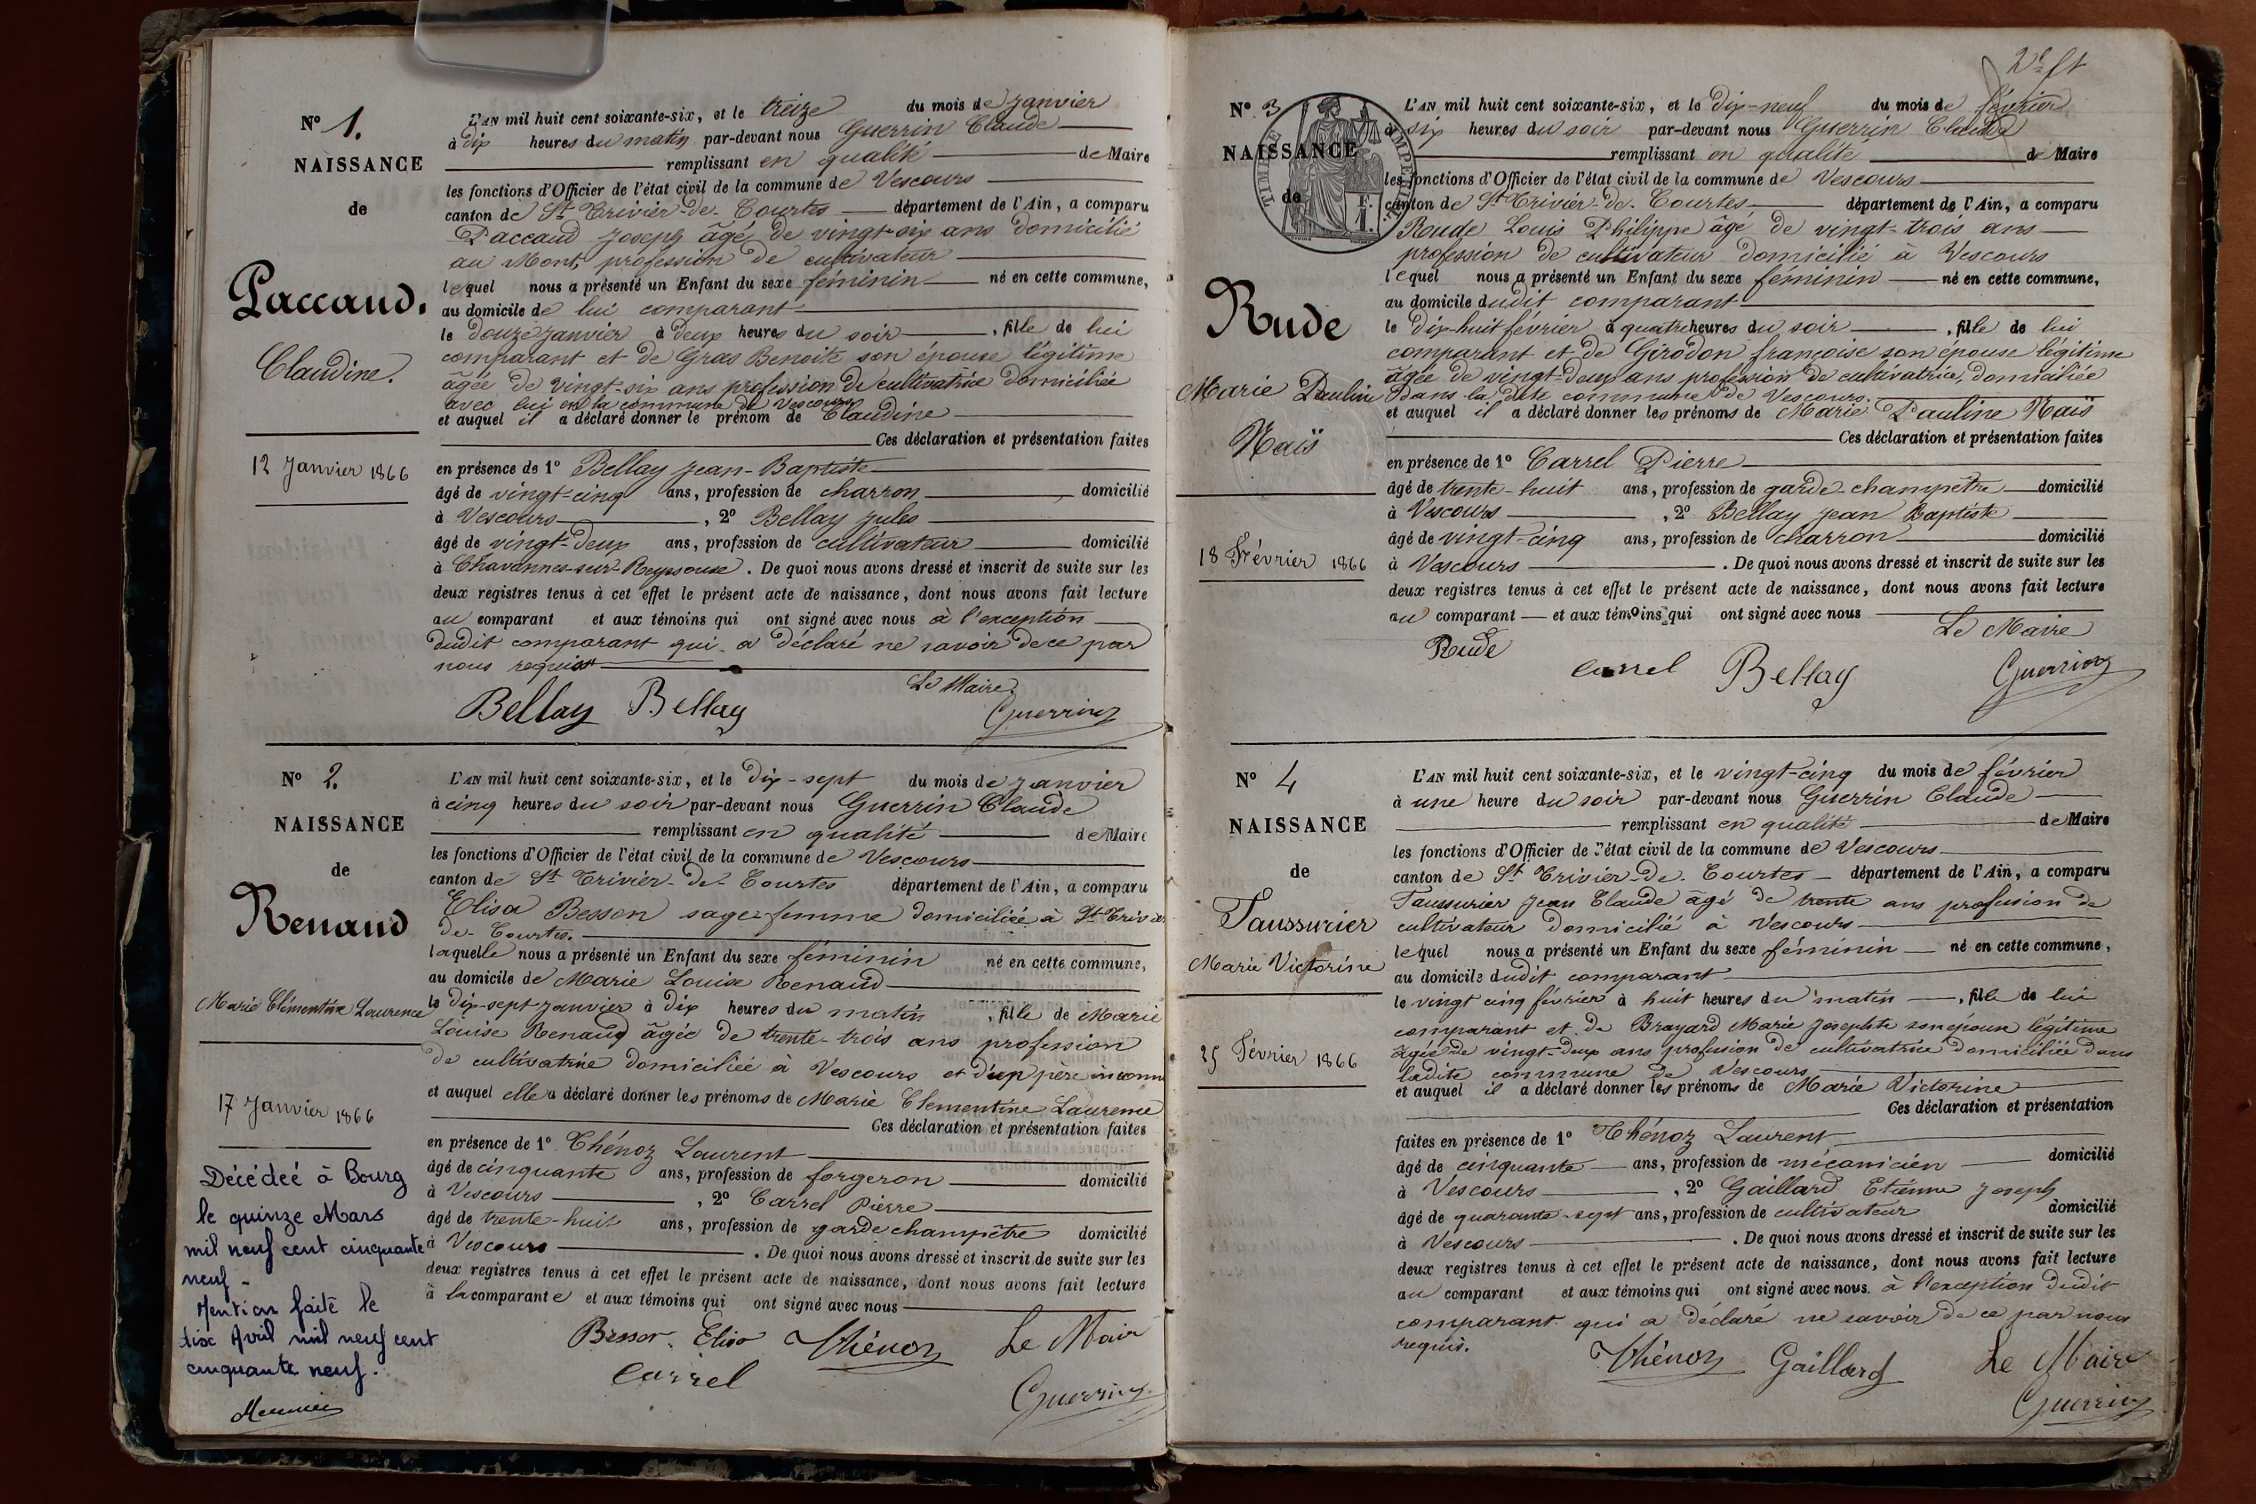 N° 1.
NAISSANCE
de
Paccaud.
Claudine.
12 Janvier 1866
L'AN mil huit cent soixante-six, et le treize du mois de janvier
à dix heures du matin par-devant nous Guerrin Claude
remplissant en qualité de Maire
les fonctions d'Officier de l'état civil de la commune de Vescours
canton de St Trivier-de-Courtes département de l'Ain, a comparu
Paccaud Joseph âgé de vingt-six ans domicilié
au Mont, profession de cultivateur
lequel nous a présenté un Enfant du sexe féminin né en cette commune,
au domicile de lui comparant
le douze janvier à deux heures du soir, fille de lui
comparant et de Gras Benoite son épouse légitime
âgée de vingt-six ans profession de cultivatrice domiciliée
avec lui en la commune de Vescours
et auquel il a déclaré donner le prénom de Claudine
Ces déclaration et présentation faites
en présence de 1° Bellay Jean-Baptiste
âgé de vingt-cinq ans, profession de charron domicilié
à Vescours, 2° Bellay Jules
âgé de vingt-deux ans, profession de cultivateur domicilié
à Chavannes-sur-Reyssouse. De quoi nous avons dressé et inscrit de suite sur les
deux registres tenus à cet effet le présent acte de naissance, dont nous avons fait lecture
au comparant et aux témoins qui ont signé avec nous à l'exception
dudit comparant qui a déclaré ne savoir de ce par
nous requis
Le Maire
Bellay Bellay Guerrin
N° 2.
NAISSANCE
de
Renaud
Marie Clémentine Laurence
17 Janvier 1866
Décédée à Bourg
le quinze Mars
mil neuf cent cinquante
neuf -
Mention faite le
dix Avril mil neuf cent
cinquante neuf.
L'AN mil huit cent soixante-six, et le dix-sept du mois de janvier
à cinq heures du soir par-devant nous Guerrin Claude
remplissant en qualité de Maire
les fonctions d'Officier de l'état civil de la commune de Vescours
canton de St Trivier-de-Courtes département de l'Ain, a comparu
Elisa Besson sage-femme domiciliée à St Trivier
de-Courtes.
laquelle nous a présenté un Enfant du sexe féminin né en cette commune,
au domicile de Marie Louise Renaud
le dix-sept janvier à dix heures du matin, fille de Marie
Louise Renaud âgée de trente-trois ans profession
de cultivatrice domiciliée à Vescours et d'un père inconnu
et auquel elle a déclaré donner les prénoms de Marie Clementine Laurence
Ces déclaration et présentation faites
en présence de 1° Thénoz Laurent
âgé de cinquante ans, profession de forgeron domicilié
à Vescours, 2° Carrel Pierre
âgé de trente-huit ans, profession de garde champêtre domicilié
à Vescours. De quoi nous avons dressé et inscrit de suite sur les
deux registres tenus à cet effet le présent acte de naissance, dont nous avons fait lecture
à la comparante et aux témoins qui ont signé avec nous
Besson Elisa Thénoz Le Maire
Carrel Guerrin
2e ft
N° 3
NAISSANCE
de
TIMBRE IMPERIAL
Rude
Marie Pauline
Naïs
18 Février 1866
L'AN mil huit cent soixante-six, et le dix-neuf du mois de février
à six heures du soir par-devant nous Guerrin Claude
remplissant en qualité de Maire
les fonctions d'Officier de l'état civil de la commune de Vescours
canton de St Trivier-de-Courtes département de l'Ain, a comparu
Rude Louis Philippe âgé de vingt-trois ans
profession de cultivateur domicilié à Vescours
lequel nous a présenté un Enfant du sexe féminin né en cette commune,
au domicile dudit comparant
le dix-huit février à quatre heures du soir, fille de lui
comparant et de Girodon françoise son épouse légitime
âgée de vingt-deux ans profession de cultivatrice, domiciliée
dans la dite commune de Vescours.
et auquel il a déclaré donner les prénoms de Marie Pauline Naïs
Ces déclaration et présentation faites
en présence de 1° Carrel Pierre
âgé de trente-huit ans, profession de garde-champêtre domicilié
à Vescours, 2° Bellay Jean Baptiste
âgé de vingt-cinq ans, profession de charron domicilié
à Vescours. De quoi nous avons dressé et inscrit de suite sur les
deux registres tenus à cet effet le présent acte de naissance, dont nous avons fait lecture
au comparant et aux témoins qui ont signé avec nous
Le Maire
Rude Carrel Bellay Guerrin
N° 4
NAISSANCE
de
Taussurier
Marie Victorine
25 Février 1866
L'AN mil huit cent soixante-six, et le vingt-cinq du mois de février
à une heure du soir par-devant nous Guerrin Claude
remplissant en qualité de Maire
les fonctions d'Officier de l'état civil de la commune de Vescours
canton de St Trivier-de-Courtes département de l'Ain, a comparu
Taussurier Jean Claude âgé de trente ans profession de
cultivateur domicilié à Vescours
lequel nous a présenté un Enfant du sexe féminin né en cette commune,
au domicile dudit comparant
le vingt cinq février à huit heures du matin, fille de lui
comparant et de Brayard Marie Josephte son épouse légitime
âgée de vingt-deux ans profession de cultivatrice domiciliée dans
ladite commune de Vescours
et auquel il a déclaré donner les prénoms de Marie Victorine
Ces déclaration et présentation
faites en présence de 1° Thénoz Laurent
âgé de cinquante ans, profession de mécanicien domicilié
à Vescours, 2° Gaillard Etienne Joseph
âgé de quarante-sept ans, profession de cultivateur domicilié
à Vescours. De quoi nous avons dressé et inscrit de suite sur les
deux registres tenus à cet effet le présent acte de naissance, dont nous avons fait lecture
au comparant et aux témoins qui ont signé avec nous à l'exception dudit
comparant qui a déclaré ne savoir de ce par nous
requis.
Thénoz Gaillard Le Maire
Guerrin